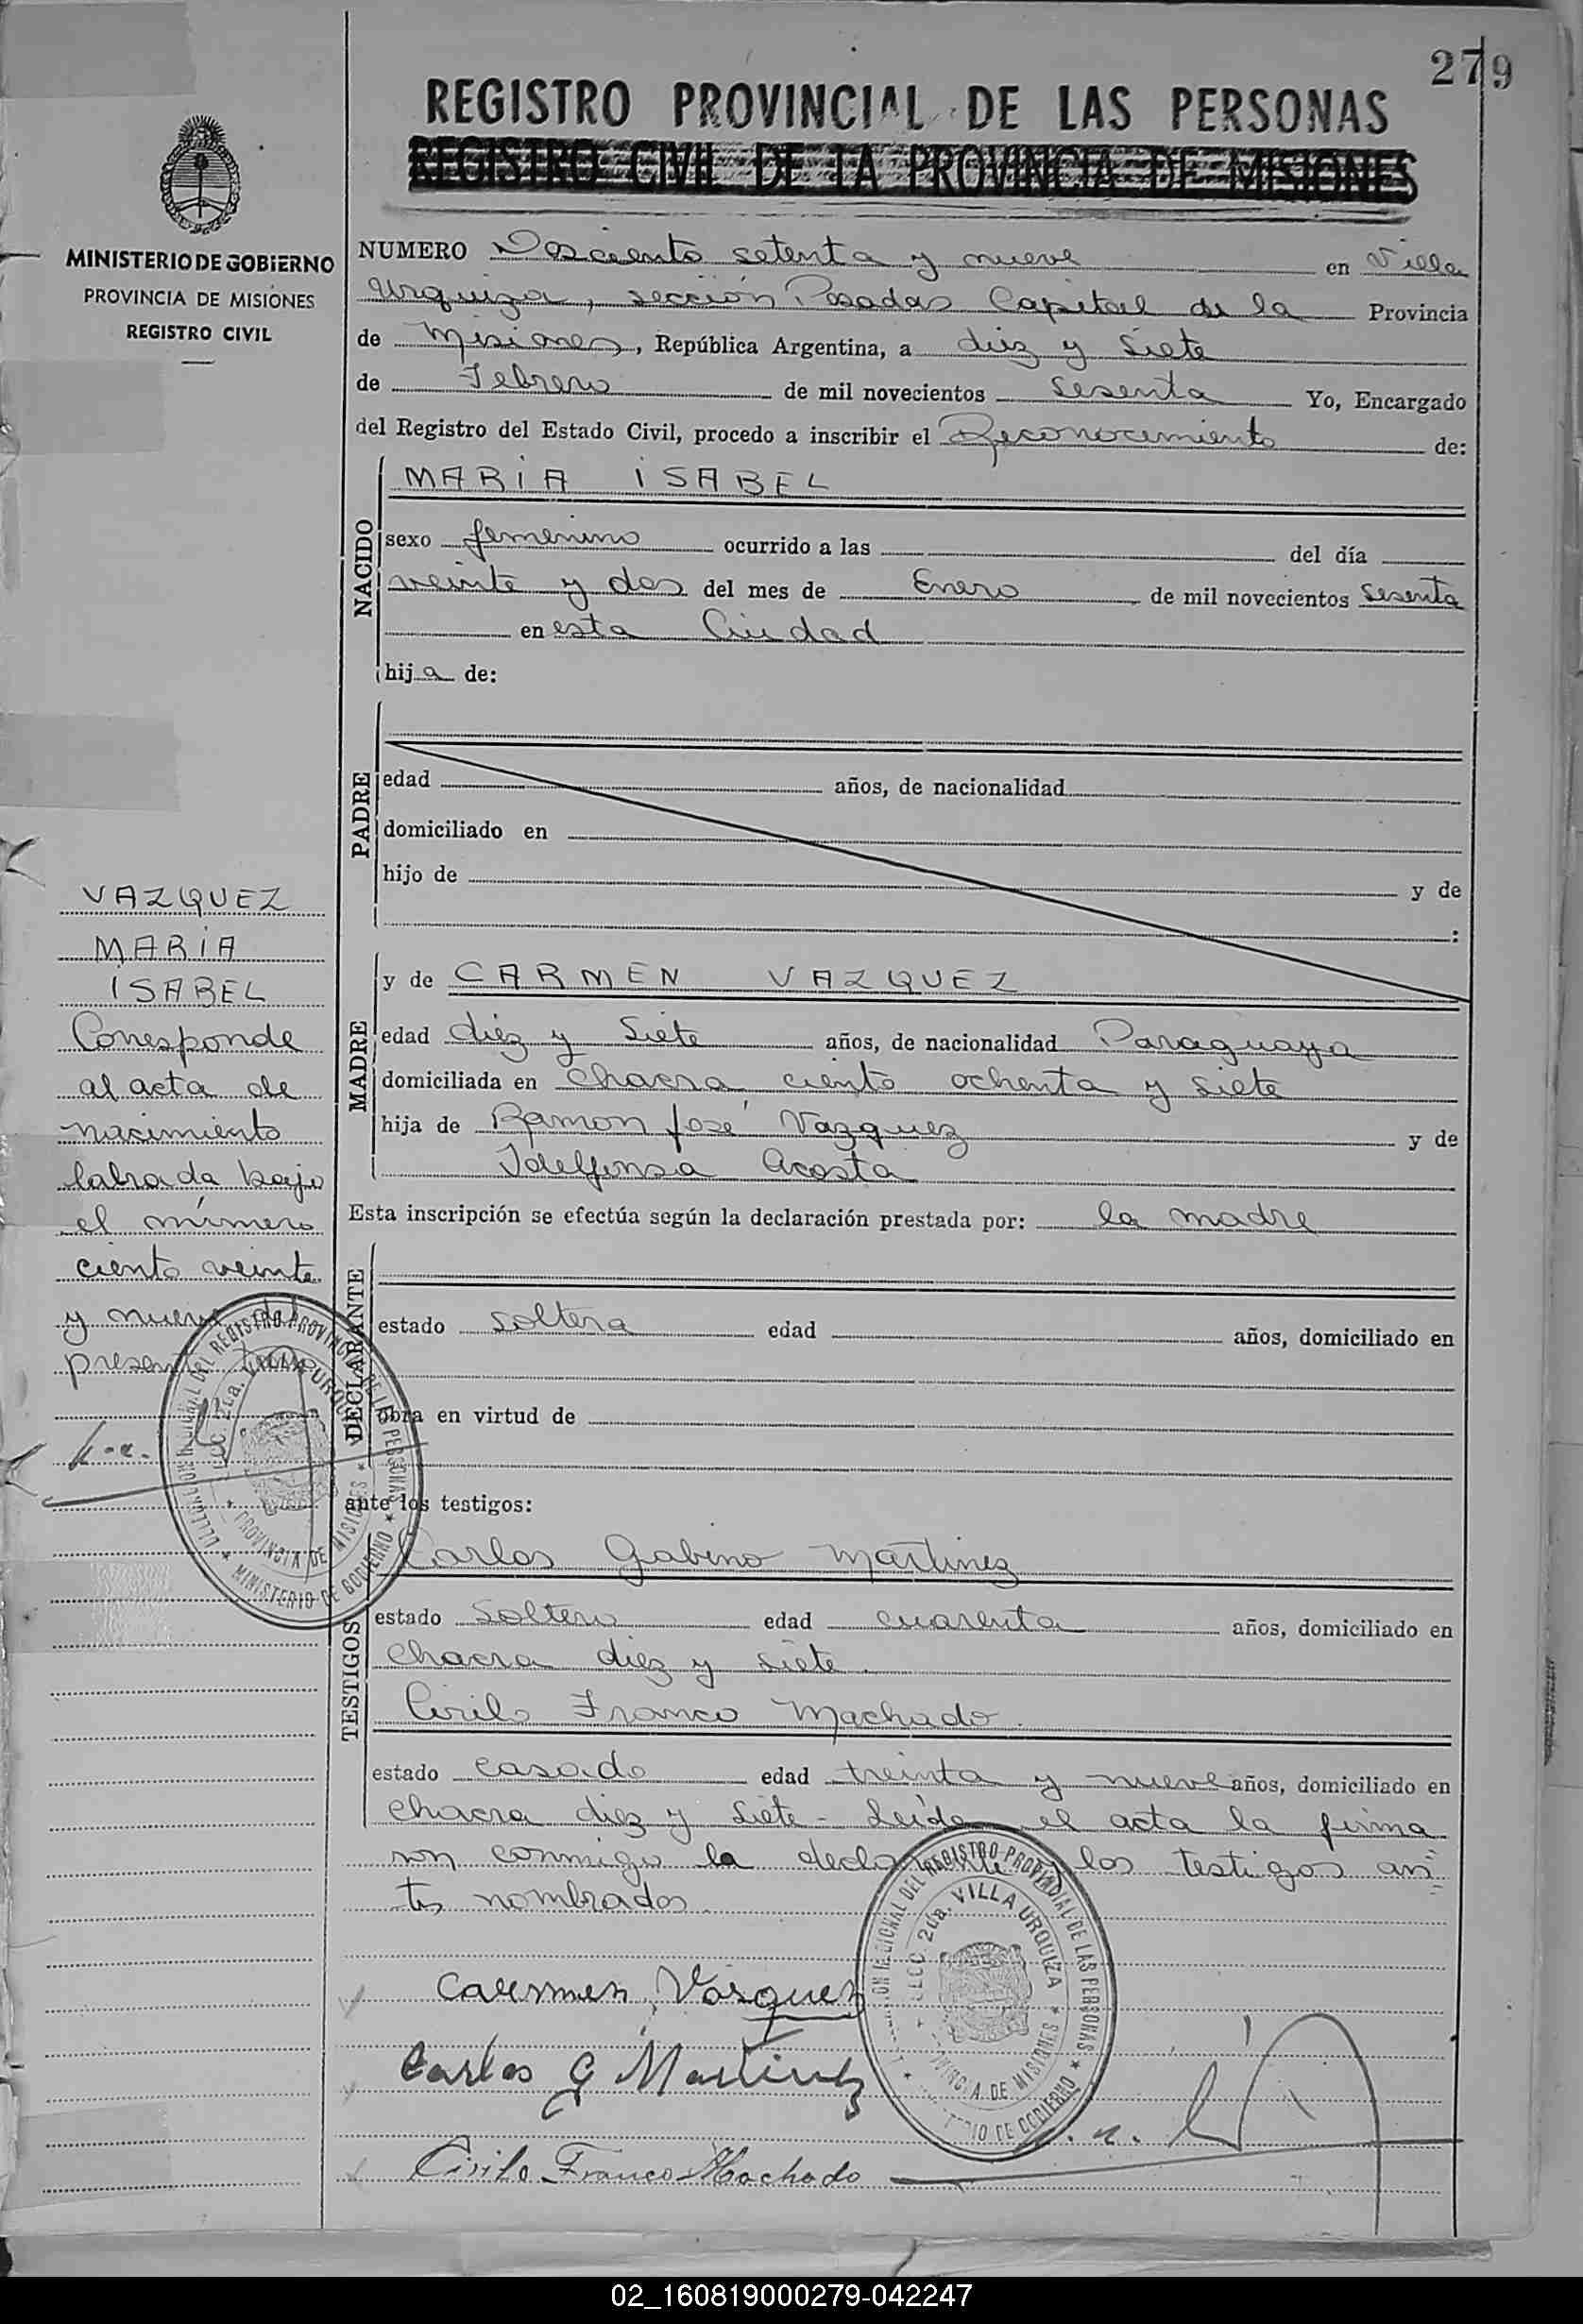 279
REGISTRO PROVINCIAL DE LAS PERSONAS
REGISTRO CIVIL DE LA PROVINCIA DE MISIONES
MINISTERIO DE GOBIERNO
PROVINCIA DE MISIONES
REGISTRO CIVIL
NUMERO Dosciento setenta y nueve en Villa
Urquiza, sección Posadas Capital de la Provincia
de Misiones, República Argentina, a diez y siete
de Febrero de mil novecientos sesenta Yo, Encargado
del Registro del Estado Civil, procedo a inscribir el Reconocimiento de:
NACIDO
MARIA ISABEL
sexo femenino ocurrido a las del día
veinte y dos del mes de Enero de mil novecientos sesenta
en esta Ciudad
hija de:
PADRE
edad años, de nacionalidad
domiciliado en
hijo de y de
:
MADRE
y de CARMEN VAZQUEZ
edad diez y siete años, de nacionalidad Paraguaya
domiciliada en chacra ciento ochenta y siete
hija de Ramon José Vazquez y de
Idelfonsa Acosta
Esta inscripción se efectúa según la declaración prestada por: la madre
DECLARANTE
estado soltera edad años, domiciliado en
obra en virtud de
ante los testigos:
TESTIGOS
Carlos Gabino Martinez
estado soltero edad cuarenta años, domiciliado en
chacra diez y siete.
Cirilo Franco Machado.
estado casado edad treinta y nueve años, domiciliado en
chacra diez y siete - Leída el acta la firma
ron conmigo la declarante y los testigos an=
tes nombrados.
Carmen Vasquez
Carlos G Martinez
Cirilo Franco Machado
VAZQUEZ
MARIA
ISABEL
Corresponde
al acta de
nacimiento
labrada bajo
el número
ciento veinte
y nueve del
presente
DEL REGISTRO PROVINCIAL DE LAS PERSONAS
MINISTERIO DE GOBIERNO
PROVINCIA DE MISIONES
DEL REGISTRO PROVINCIAL DE LAS PERSONAS
SECC. 2da. VILLA URQUIZA
PROVINCIA DE MISIONES
02_160819000279-042247